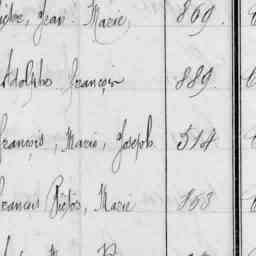 Jean Marie, 869.
Adolphe François 889.
François, Marie, Joseph 514
François Victor, Marie 853